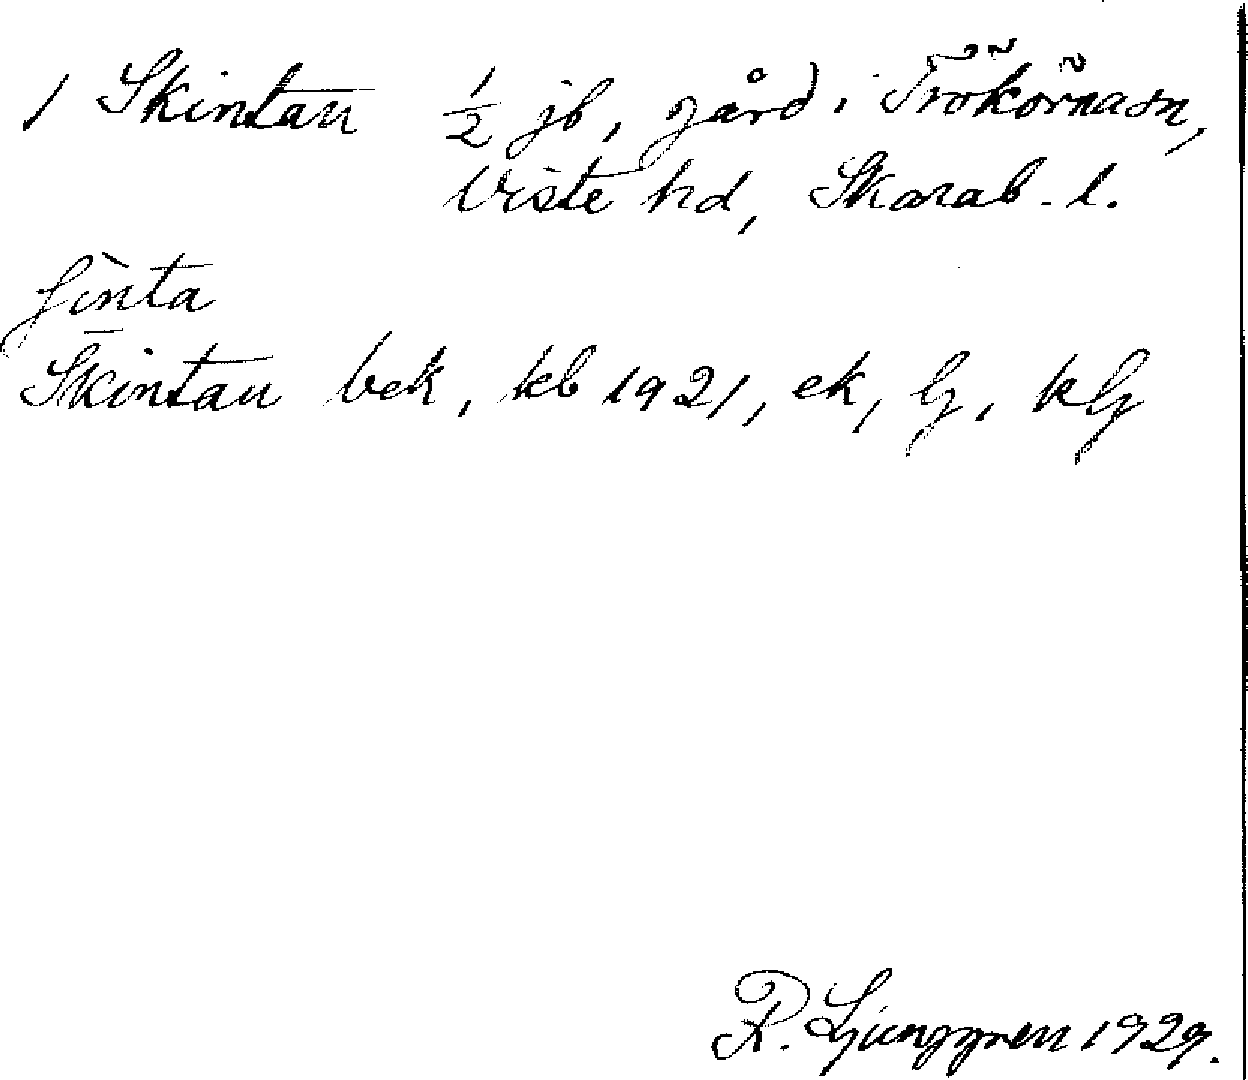 1 Skintan ½ jb, gård i Trökörnasn,
Viste hd, Skarab. l.
ʃinta
Skintan bek, kb 1921, ek, lj, klj
R. Ljunggren 1929.